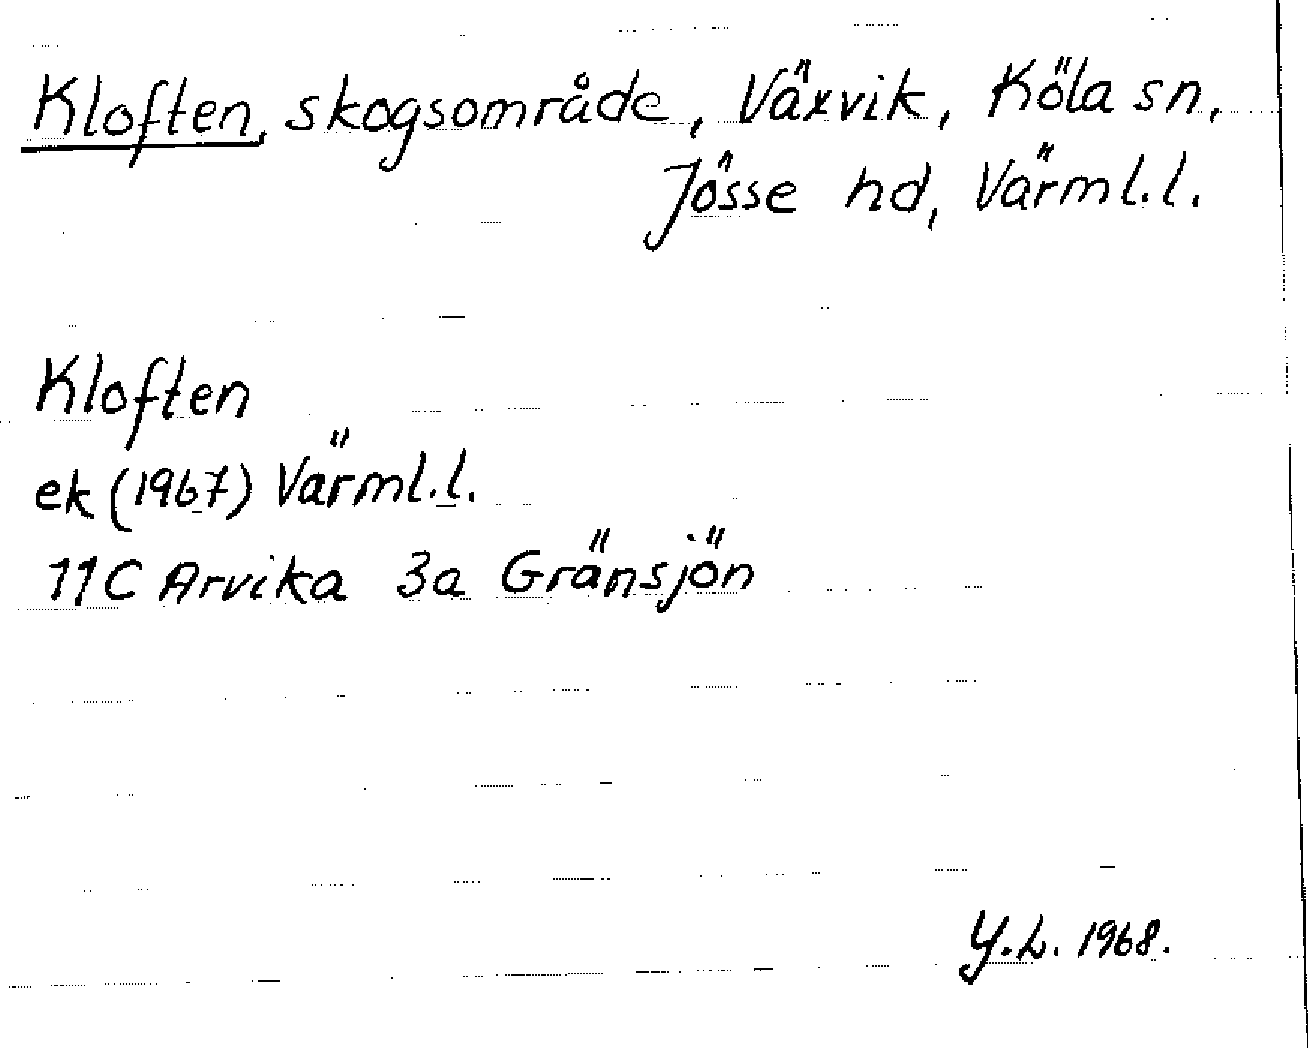 Kloften, skogsområde, Växvik, Köla sn,
Jösse hd, Värml.l.
Kloften
ek (1967) Värml.l.
11C Arvika 3a Gränsjön
Y.L. 1968.